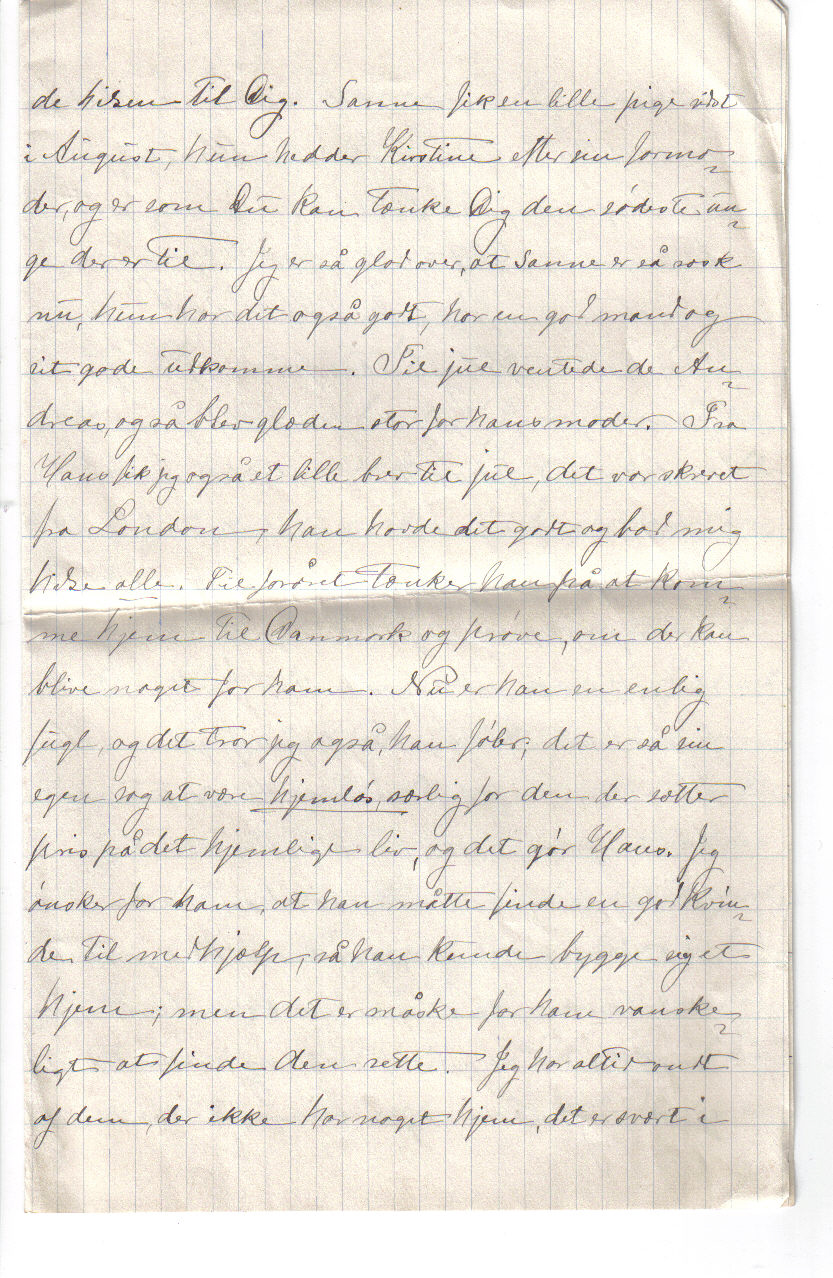 de hilsen til Dig. Sanne fik en lille pige sidst
i August, hun hedder Kirstine efter sin farmo-
der, og er som Du kan tænke Dig den sødeste un-
ge der er til. Jeg er så glad over, at Sanne er så rask
nu, hun har det også godt, har en god mand og
sit gode udkomme. Til jul ventede de An-
dreas, og så blev glæden stor for hans moder. Fra
Hans fik jeg også et lille brev til jul, det var skrevet
fra London, han havde det godt og bad mig
hilse alle. Til foråret tænker han på at kom-
me hjem til Danmark og prøve, om der kan
blive noget for ham. Nu er han en enlig
fugl, og det tror jeg også, han føler; det er så sin
egen sag at være hjemløs, særlig for den der sætter
pris på det hjemlige liv, og det gør Hans. Jeg
ønsker for ham, at han måtte finde en god kvin-
de til medhjælp, så han kunde bygge sig et
hjem; men det er måske for ham vanske-
ligt at finde den rette. Jeg har altid ondt
af dem, der ikke har noget hjem, det er svært i